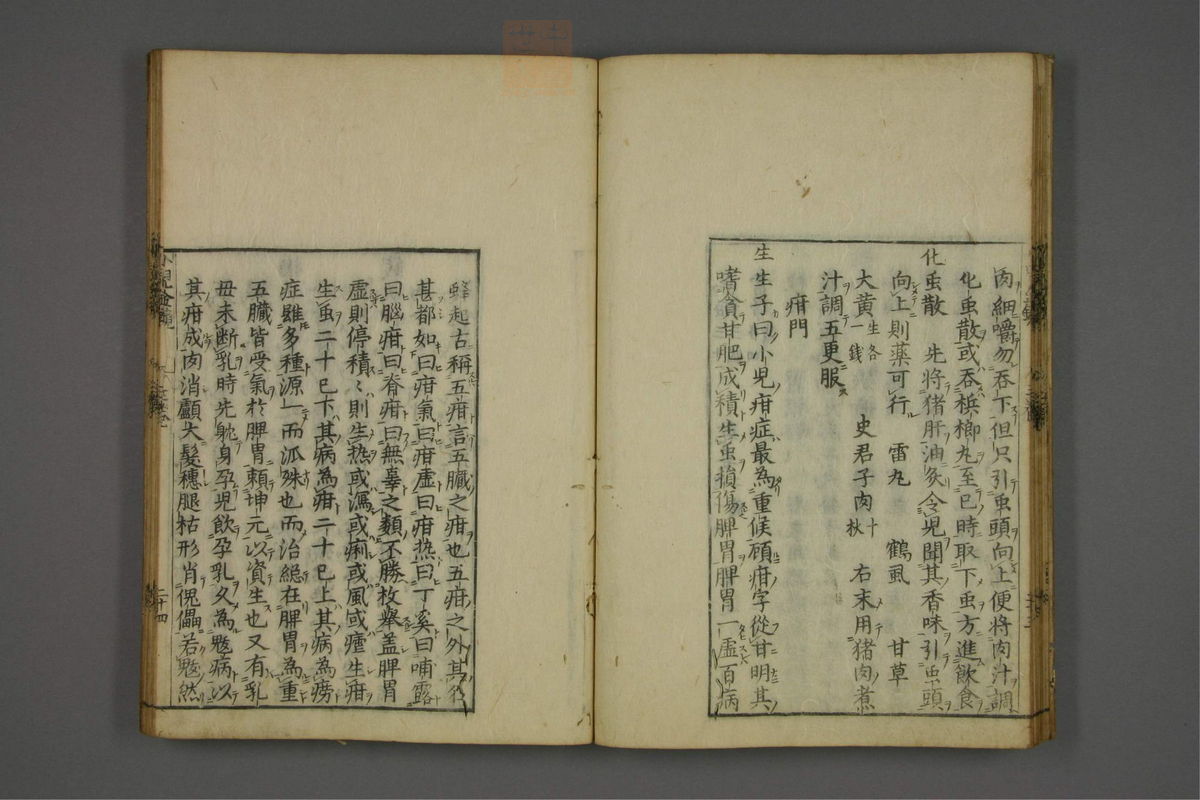 肉細嚼勿吞下但只引虫頭向上便將肉汁調
化虫散或吞梹榔丸至巳時取下虫方進飲食
化虫散 先将猪肝油灸令児聞其香味引虫頭
向上則薬可行 雷丸 鶴虱 甘草
大黄 生各一銭 史君子肉 十枚 右末用猪肉煮
汁調五更服
疳門
生生子曰小児疳症最為重候顧疳字從甘明其
嗜食甘肥成積生虫損傷脾胃脾胃一虚百病
蜂起古称五疳言五臓之疳也五疳之外其名
甚都如曰疳氣曰疳虚曰疳热曰丁奚曰哺露
曰腦疳曰脊疳曰無辜之類不勝枚舉盖脾胃
虚則停積〻則生热或瀉或痢或風或瘧生疳
生虫二十已下其病為疳二十已上其病為癆
症雖多種源一而派殊也而治縂在脾胃為重
五臓皆受氣於脾胃頼坤元以資生也又有乳
毋未断乳時先躭身孕児飲孕乳久為鬾病以
其疳成肉消顱大髮穗腿枯形肖傀儡若鬾然
二十四